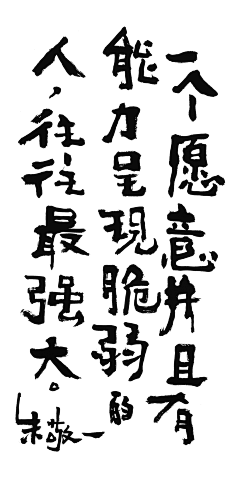 一个愿意并且有
能力呈现脆弱的
人，往往最强大。
朱敬一